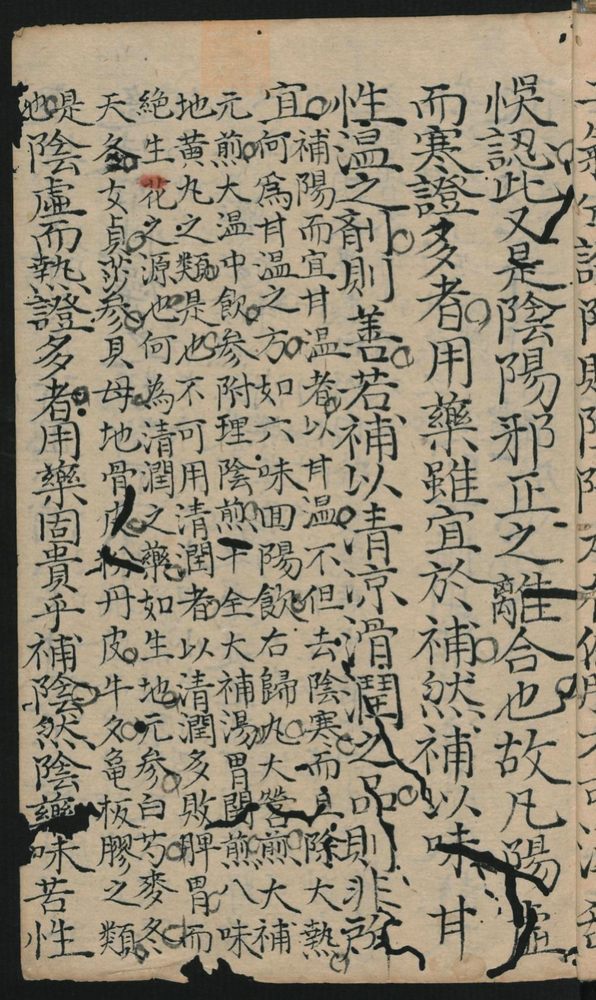 悞認此又是陰陽邪正之離合也故凡陽虛
而寒證多者用藥雖宜於補然補以味甘
性溫之劑則善若補以清凉滑潤之品則非所
宜補陽而宜甘溫者以甘溫不但去陰寒而且除大熱
何爲甘溫之方如六味回陽飲右歸丸大營煎大補
元煎大溫中飲參附理陰煎十全大補湯胃関煎八味
地黄丸之類是也不可用清潤者以清潤多敗脾胃而
絶生化之源也何為清潤之藥如生地元参白芍麥冬
天冬女貞莎参貝母地骨皮丹皮牛夕龜板膠之類
是
也陰虛而熱證多者用藥固貴乎補陰然陰藥味苦性